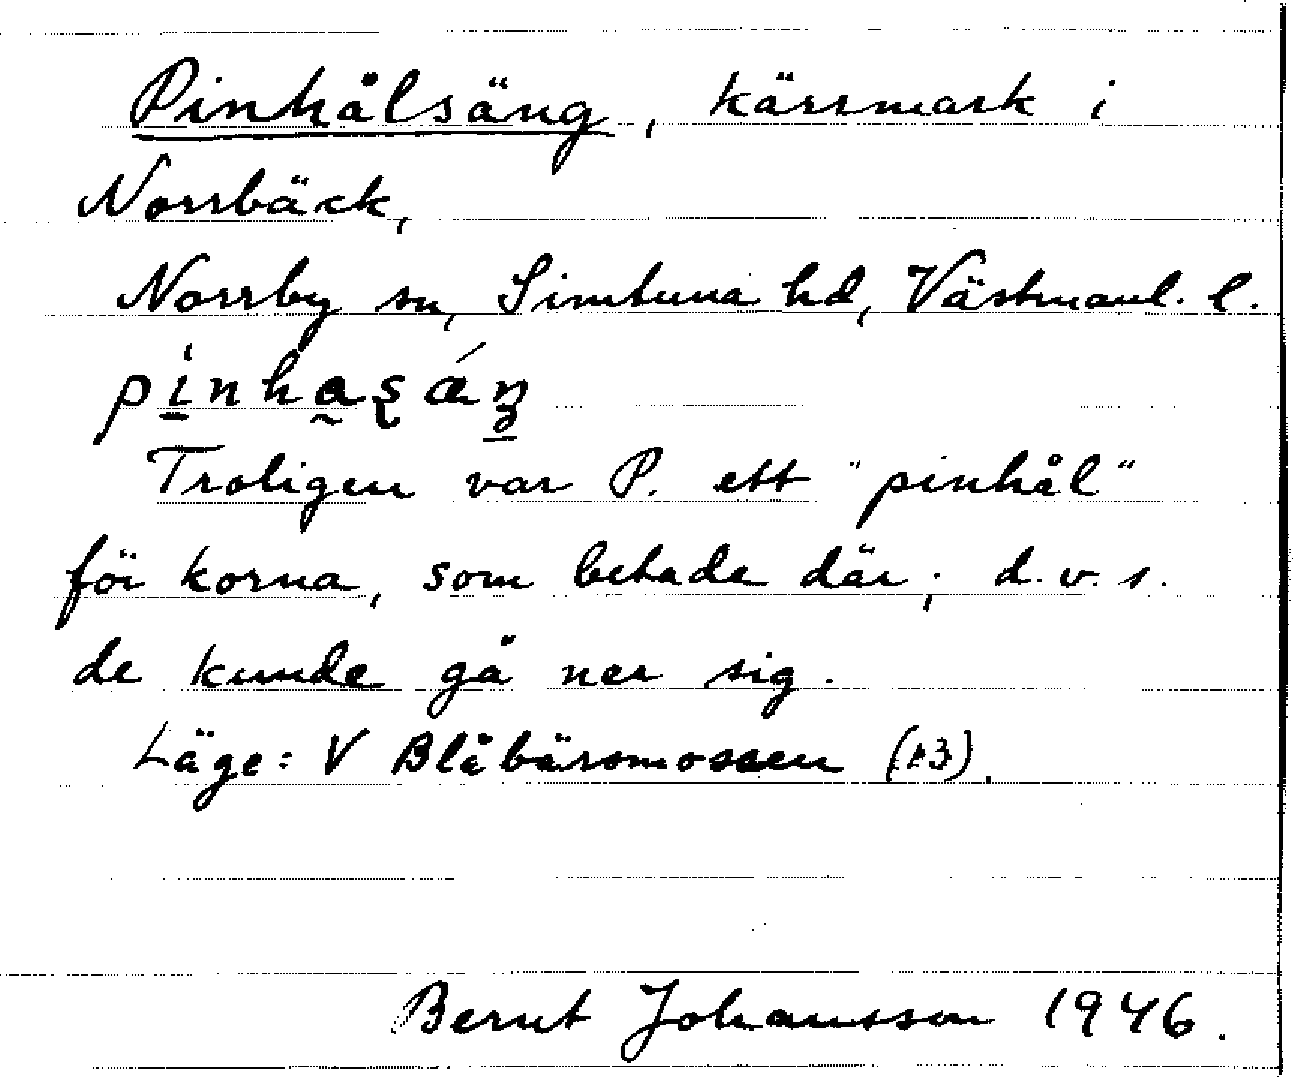 Pinhålsäng, kärrmark i
Norrbäck,
Norrby sn, Simtuna hd, Västmanl. l.
Troligen var P. ett "pinhål"
för korna, som betade där; d.v.s.
de kunde gå ner sig.
Läge: V Blåbärsmossen
Bernt Johansson 1946.